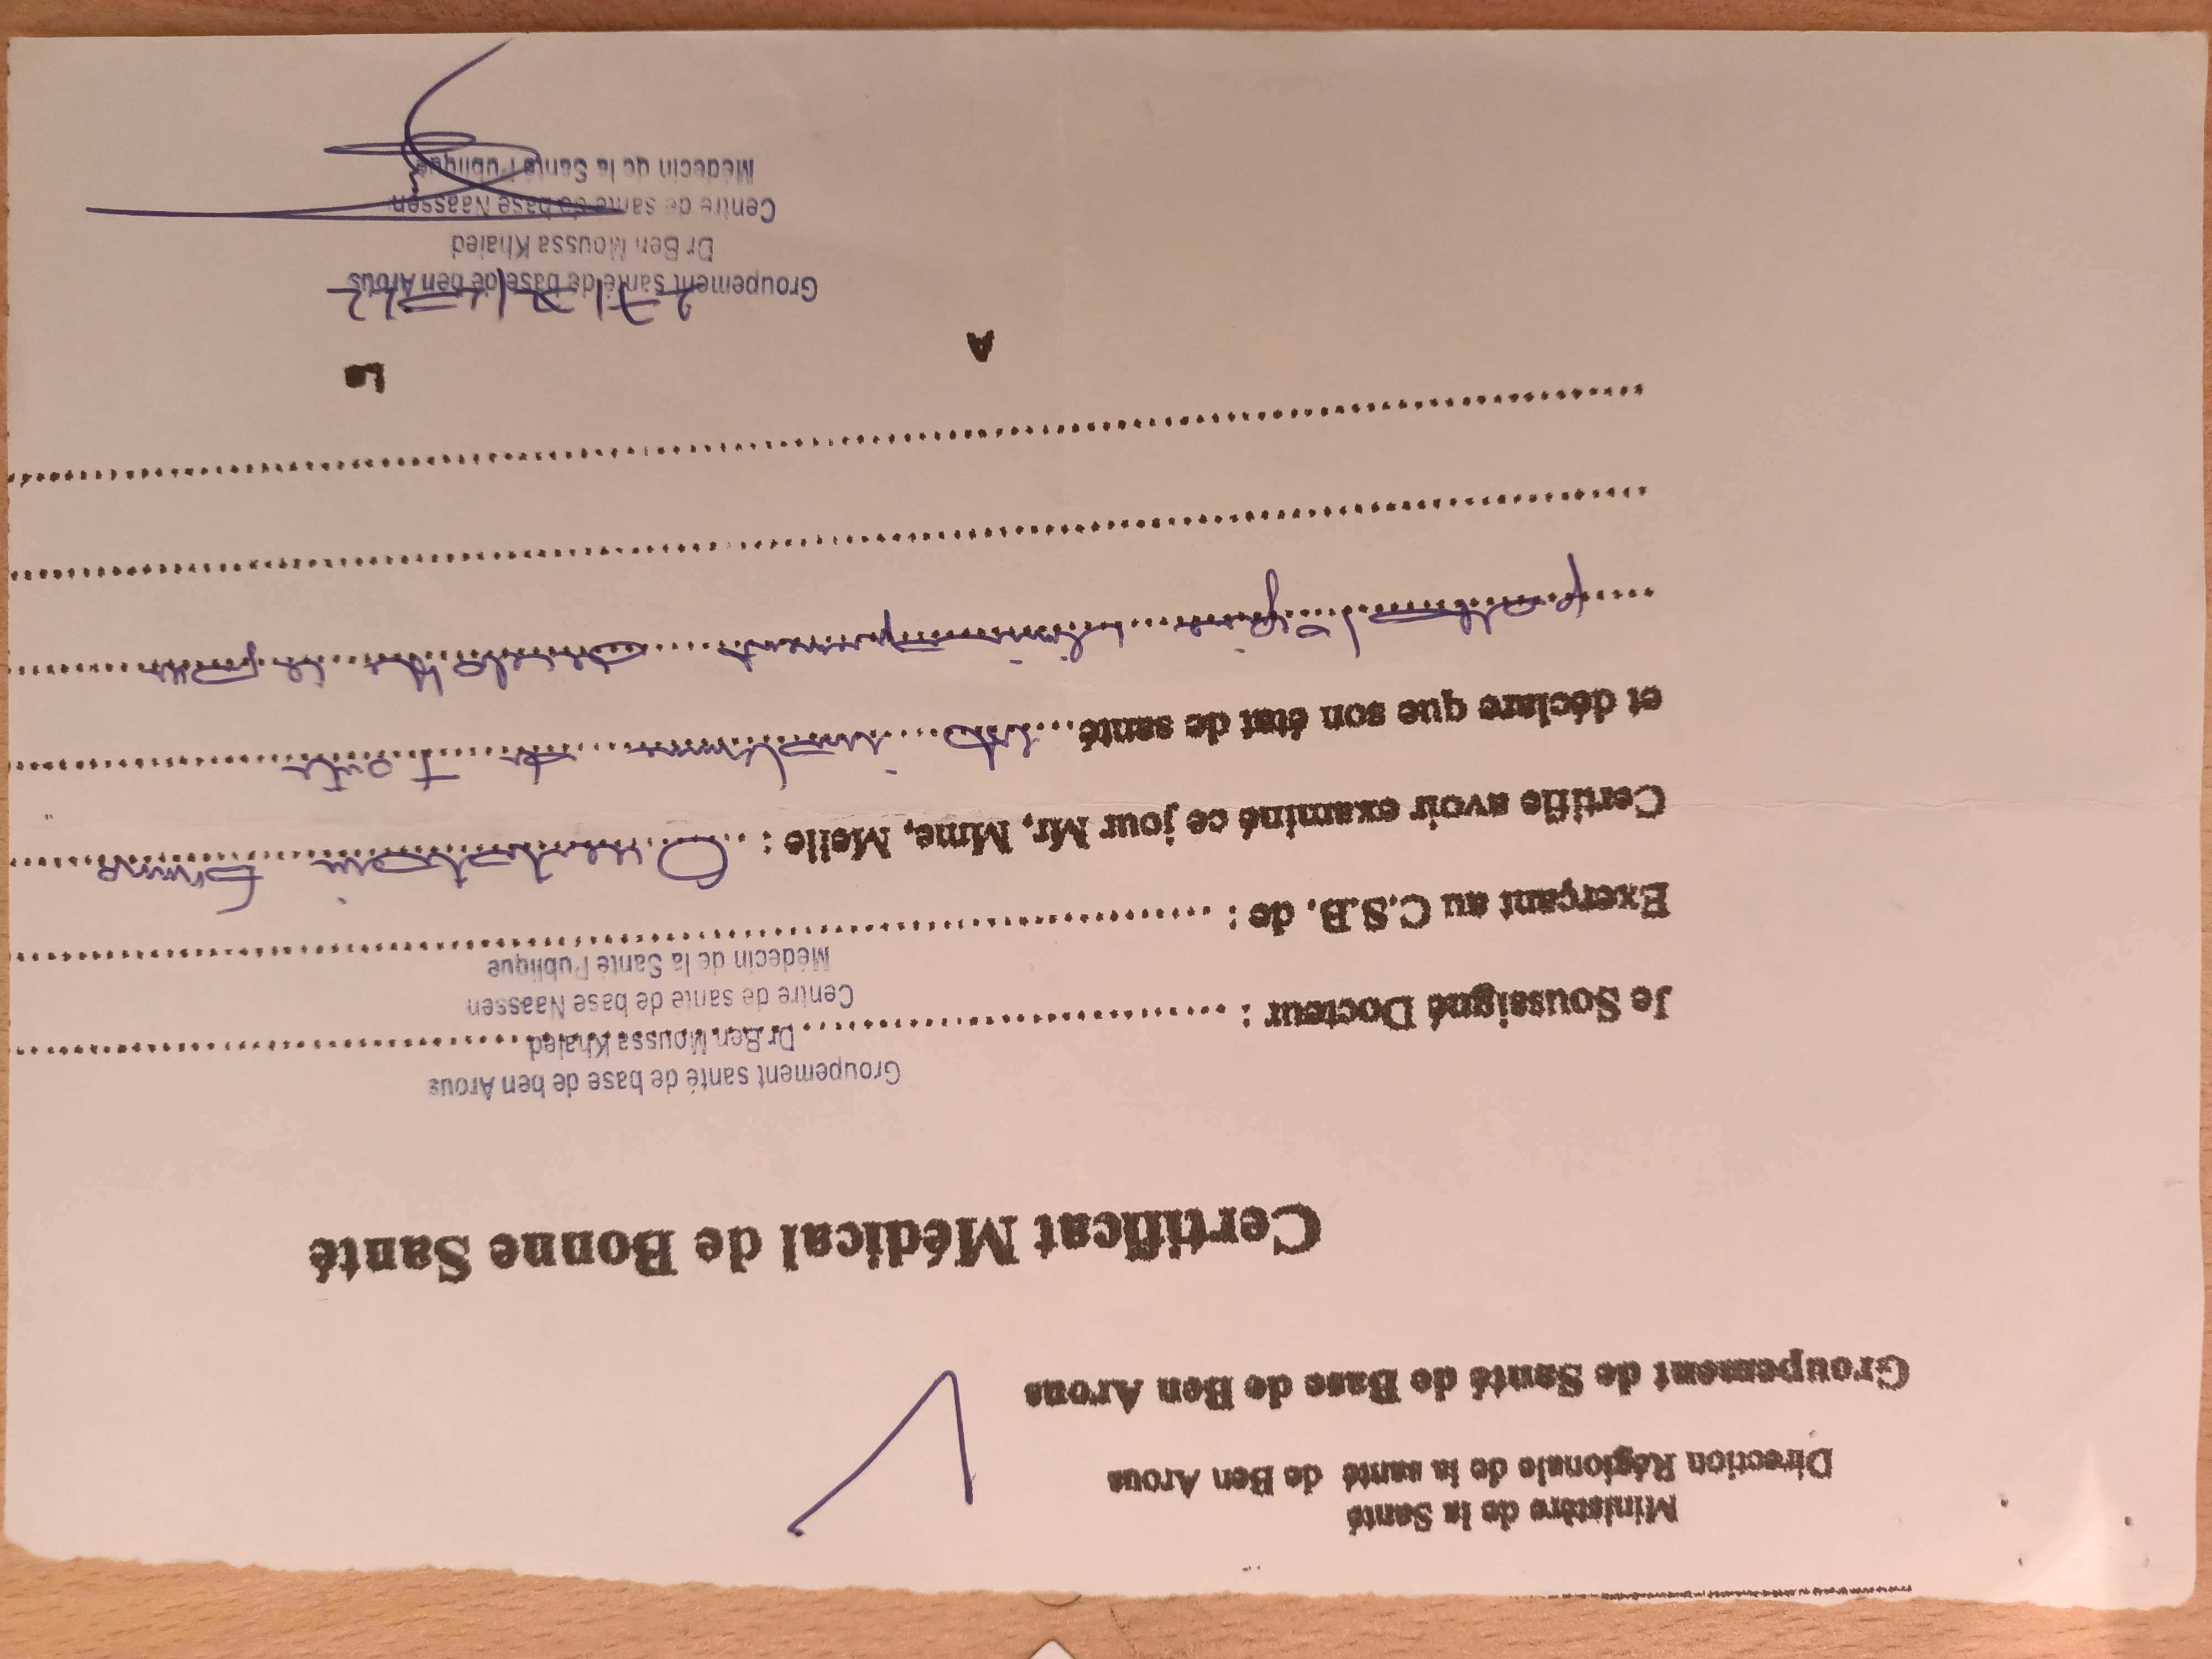 Ministère de la Santé
Direction Régionale de la santé de Ben Arous
Groupement de Santé de Base de Ben Arous
Certificat Médical de Bonne Santé
Groupement santé de base de ben Arous
Je Soussigné Docteur : Dr Ben Moussa Khaled
Centre de santé de base Naassen
Médecin de la Santé Publique
Exerçant au C.S.B. de :
Certifie avoir examiné ce jour Mr, Mme, Melle :
et déclare que son état de santé est indemne de toute
pathologie cliniquement décelable ce jour
A
Le
Groupement santé de base de ben Arous
Dr Ben Moussa Khaled
Centre de santé de base Naassen
Médecin de la Santé Publique